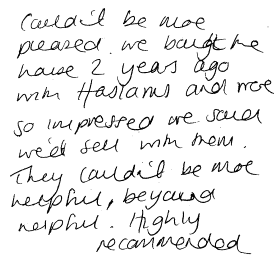 Couldn't be more
pleased. we bought the
house 2 years ago
with Haslams and were
so impressed we said
we'd sell with them.
They couldn't be more
helpful, beyond
helpful. Highly
recommended